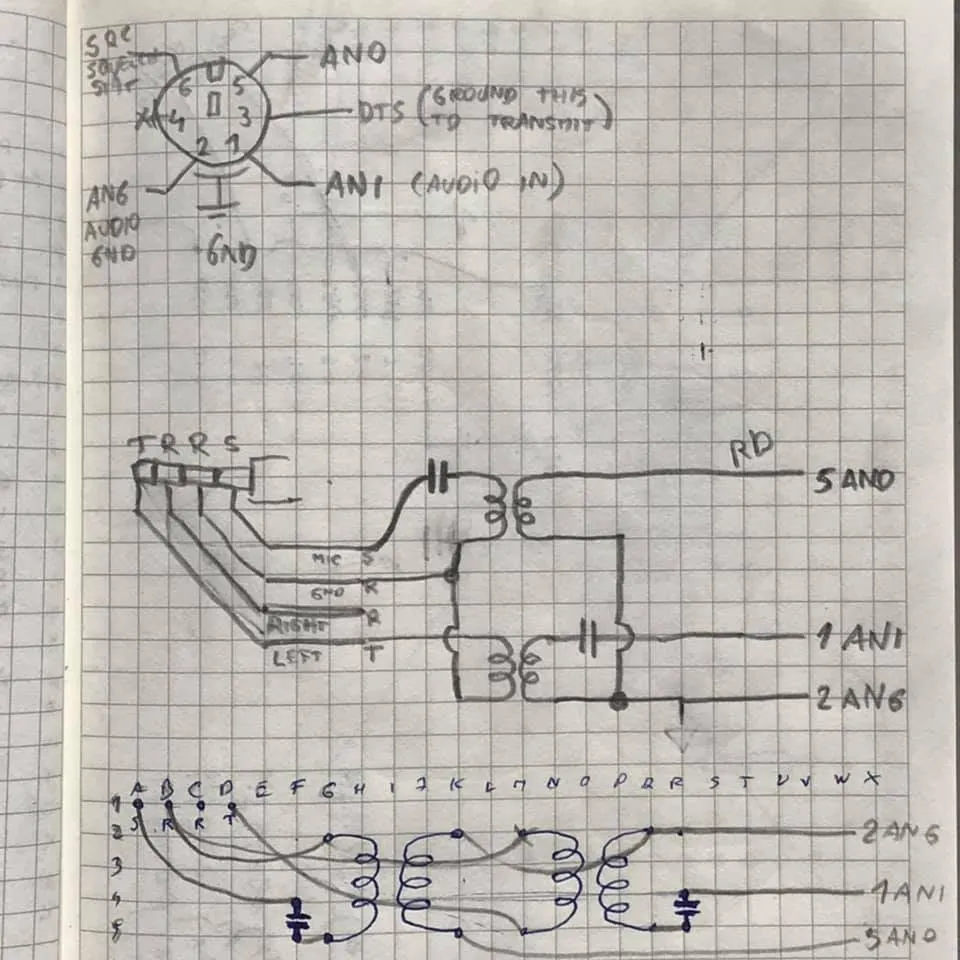 SQC
SQUELCH
STAT
ANO
6 5
X 4 3
DTS (GROUND THIS
TO TRANSMIT)
2 1
ANG
AUDIO
GND
AN1 (AUDIO IN)
GND
T R R S
RD
5 ANO
MIC S
GND R
RIGHT R
LEFT T
1 AN1
2 ANG
A B C D E F G H I J K L M N O P Q R S T U V W X
1
S R R T
2
2 ANG
3
4
1 AN1
5
5 ANO